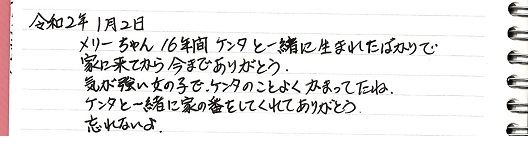 令和2年1月2日
メリーちゃん 16年間 ケンタと一緒に生まれたばかりで
家に来てから今までありがとう.
気が強い女の子で.ケンタのことよくかまってたね.
ケンタと一緒に家の番をしてくれてありがとう
忘れないよ.